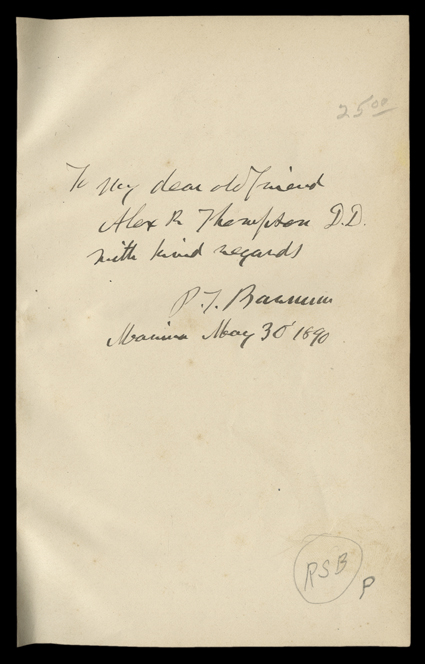 25.00
To my dear old friend
Alex R Thompson D.D.
with kind regards
P. T. Barnum
Marina May 30 1890
RSB
P